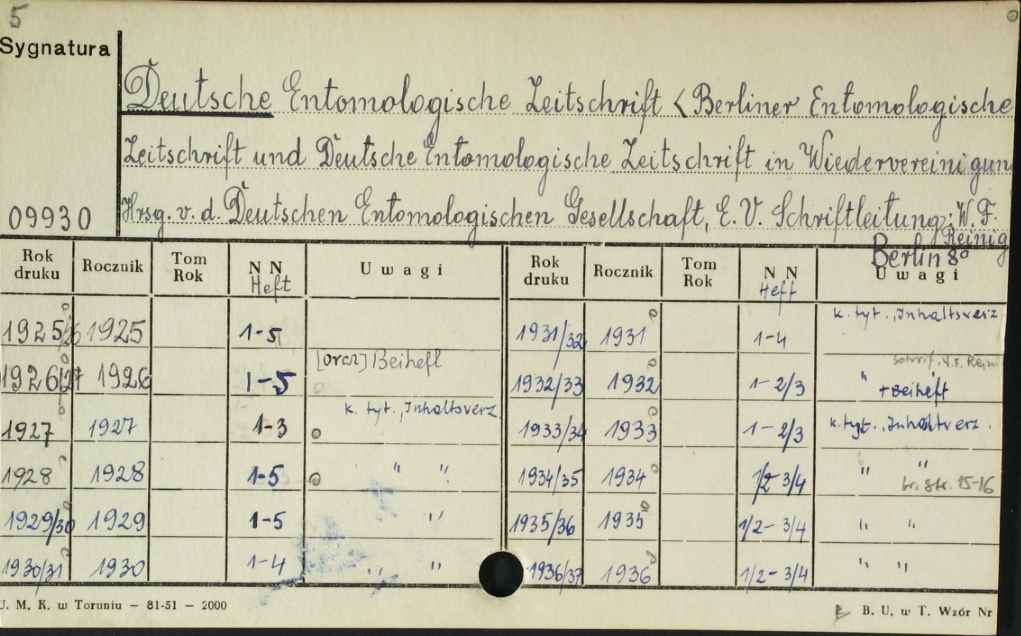 5
Sygnatura
Deutsche Entomologische Zeitschrift < Berliner Entomologische
Zeitschrift und Deutsche Entomologische Zeitschrift in Wiedervereinigun
Hrsg. v. d. Deutschen Entomologischen Gesellschaft, E. V. Schriftleitung: W. F.
Reinig
09930
Berlin 8°
Rok druku Rocznik Tom Rok N N Heft Uwagi Rok druku Rocznik Tom Rok N N Heft Uwagi
1925/26 1925 1-5 1931/32 1931 1-4 k. tyt., Inhaltsverz
1926/27 1926 1-5 [oraz] Beiheft 1932/33 1932 1-2/3 " + Beiheft
1927 1927 1-3 k. tyt., Inhaltsverz 1933/34 1933 1-2/3 k. tyt., Inhaltverz.
1928 1928 1-5 " " 1934/35 1934 1/2-3/4 " "
br. str. 15-16
1929/30 1929 1-5 " 1935/36 1935 1/2-3/4 " "
1930/31 1930 1-4 " " 1936/37 1936 1/2-3/4 " "
U. M. K. w Toruniu – 81-51 – 2000 B. U. w T. Wzór Nr